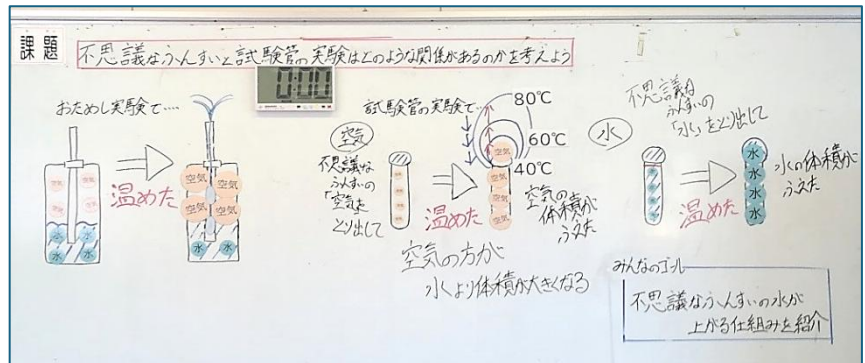 課題
不思議なふんすいと試験管の実験はどのような関係があるのかを考えよう
0:00
おためし実験で‥‥
温めた
空気
空気
空気
空気
空気
空気
空気
空気
水
水
水
水
水
水
試験管の実験で‥
空気
不思議な
ふんすいの
「空気」を
とり出して
温めた
80℃
60℃
40℃
空気
空気
空気
空気
空気の
体積が
ふえた
空気の方が
水より体積が大きくなる
水
不思議な
ふんすいの
「水」をとり出して
温めた
水
水
水
水
水の体積が
ふえた
みんなのゴール
不思議なふんすいの水が
上がる仕組みを紹介